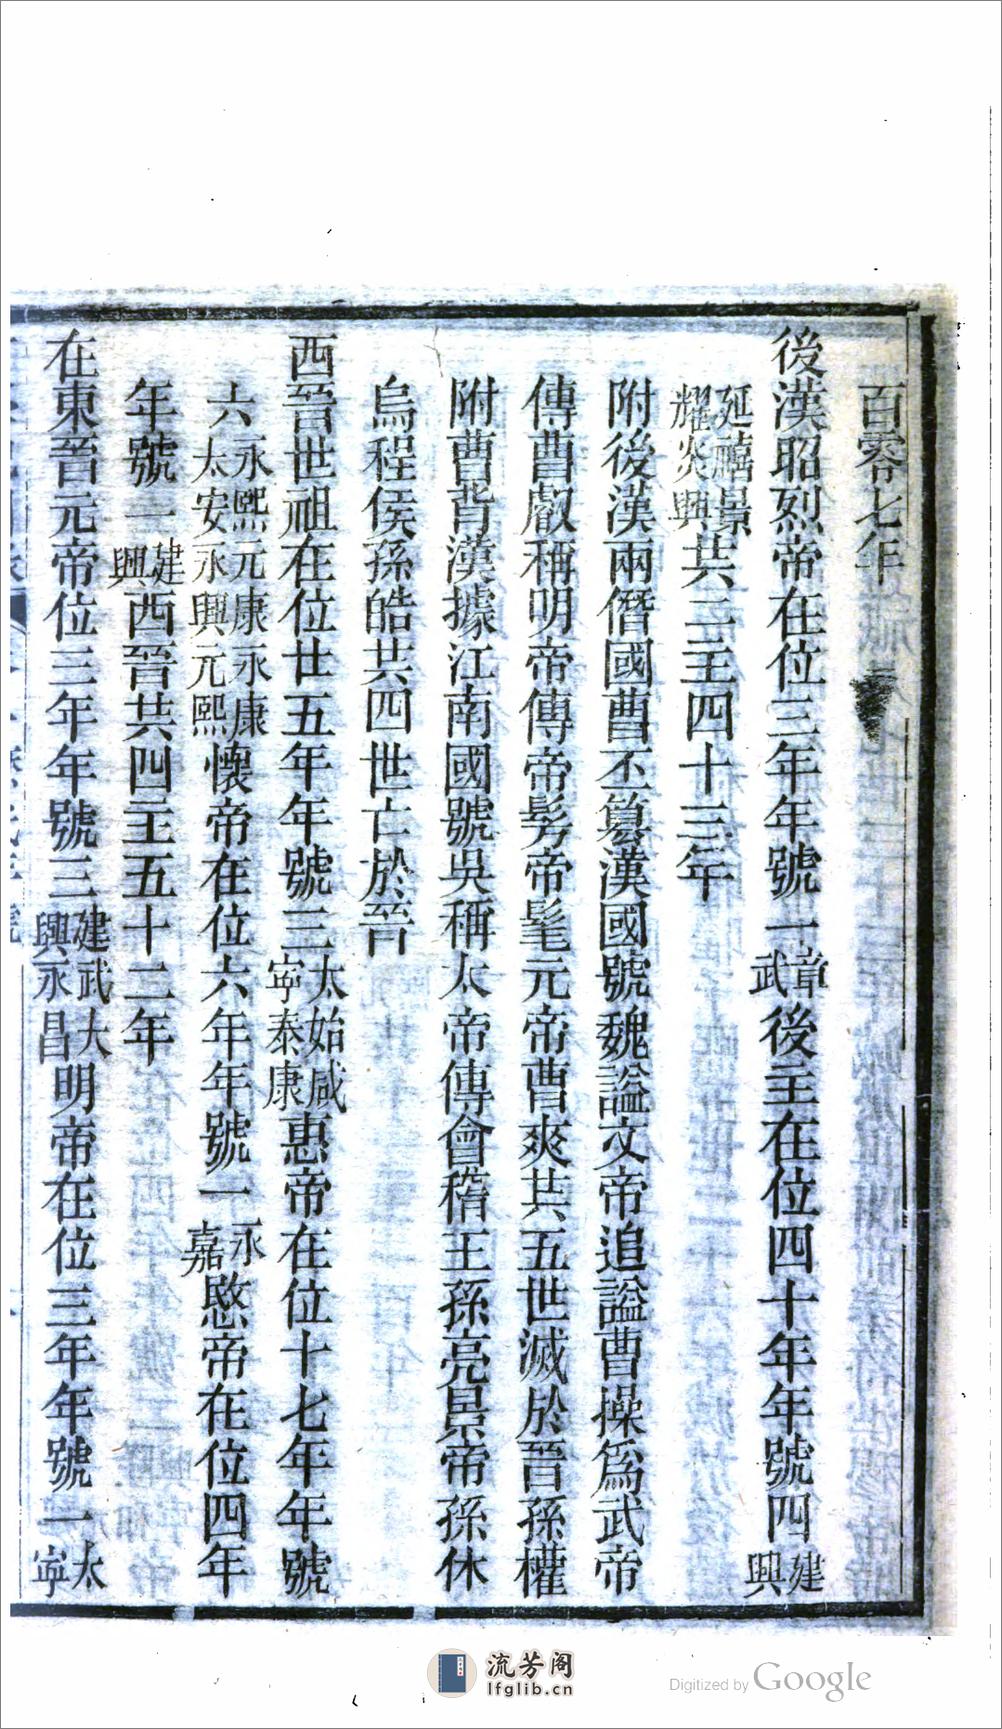 百零七年
後漢昭烈帝在位三年年號一章武後主在位四十年年號四建興
延禧景耀炎興共二主四十三年
附後漢兩僭國曹丕篡漢國號魏謚文帝追謚曹操爲武帝
傳曹叡稱明帝傳帝髣帝髦元帝曹奭共五世滅於晉孫權
附曹背漢據江南國號吳稱太帝傳會稽王孫亮景帝孫休
烏程侯孫皓共四世亡於晉
西晉世祖在位廿五年年號三太始咸寧泰康惠帝在位十七年年號
六永熙元康永康太安永興元熙懷帝在位六年年號一永嘉愍帝在位四年
年號一建興西晉共四主五十二年
在東晉元帝位三年年號三建武大興永昌明帝在位三年年號一太寧
流芳阁
lfglib.cn
Digitized by Google